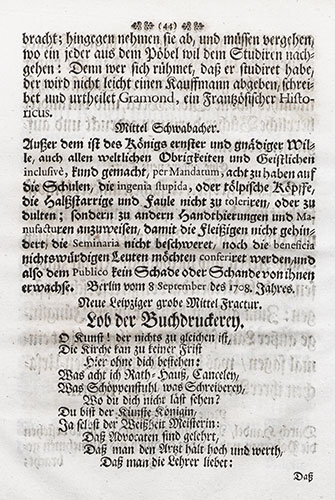 (44)
bracht; hingegen nehmen sie ab, und müssen vergehen,
wo ein jeder aus dem Pöbel wil dem Studiren nach-
gehen! Denn wer sich rühmet, daß er studiret habe,
der wird nicht leicht einen Kauffmann abgeben, schrei-
bet und urtheilet Gramond, ein Frantzösischer Histo-
ricus.
Mittel Schwabacher.
Außer dem ist des Königs ernster und gnädiger Wil-
le, auch allen weltlichen Obrigkeiten und Geistlichen
inclusivè, kund gemacht, per Mandatum, acht zu haben auf
die Schulen, die ingenia stupida, oder tölpische Köpffe,
die Halßstarrige und Faule nicht zu toleriren, oder zu
dulten; sondern zu andern Handthierungen und Ma-
nufacturen anzuweisen, damit die Fleißigen nicht gehin-
dert, die Seminaria nicht beschweret, noch die beneficia
nichtswürdigen Leuten möchten conferiret werden, und
also dem Publico kein Schade oder Schande von ihnen
erwachse. Berlin vom 8 September des 1708. Jahres.
Neue Leipziger grobe Mittel Fractur.
Lob der Buchdruckerey.
O Kunst! der nichts zu gleichen ist,
Die Kirche kan zu keiner Frist
Hier ohne dich bestehen:
Was acht ich Rath-Hauß, Canceley,
Was Schöppenstuhl, was Schreiberey,
Wo du dich nicht läst sehen?
Du bist der Künste Königin,
Ja selbst der Weißheit Meisterin:
Daß Advocaten sind gelehrt,
Daß man den Artzt hält hoch und werth,
Daß man die Lehrer liebet:
Daß